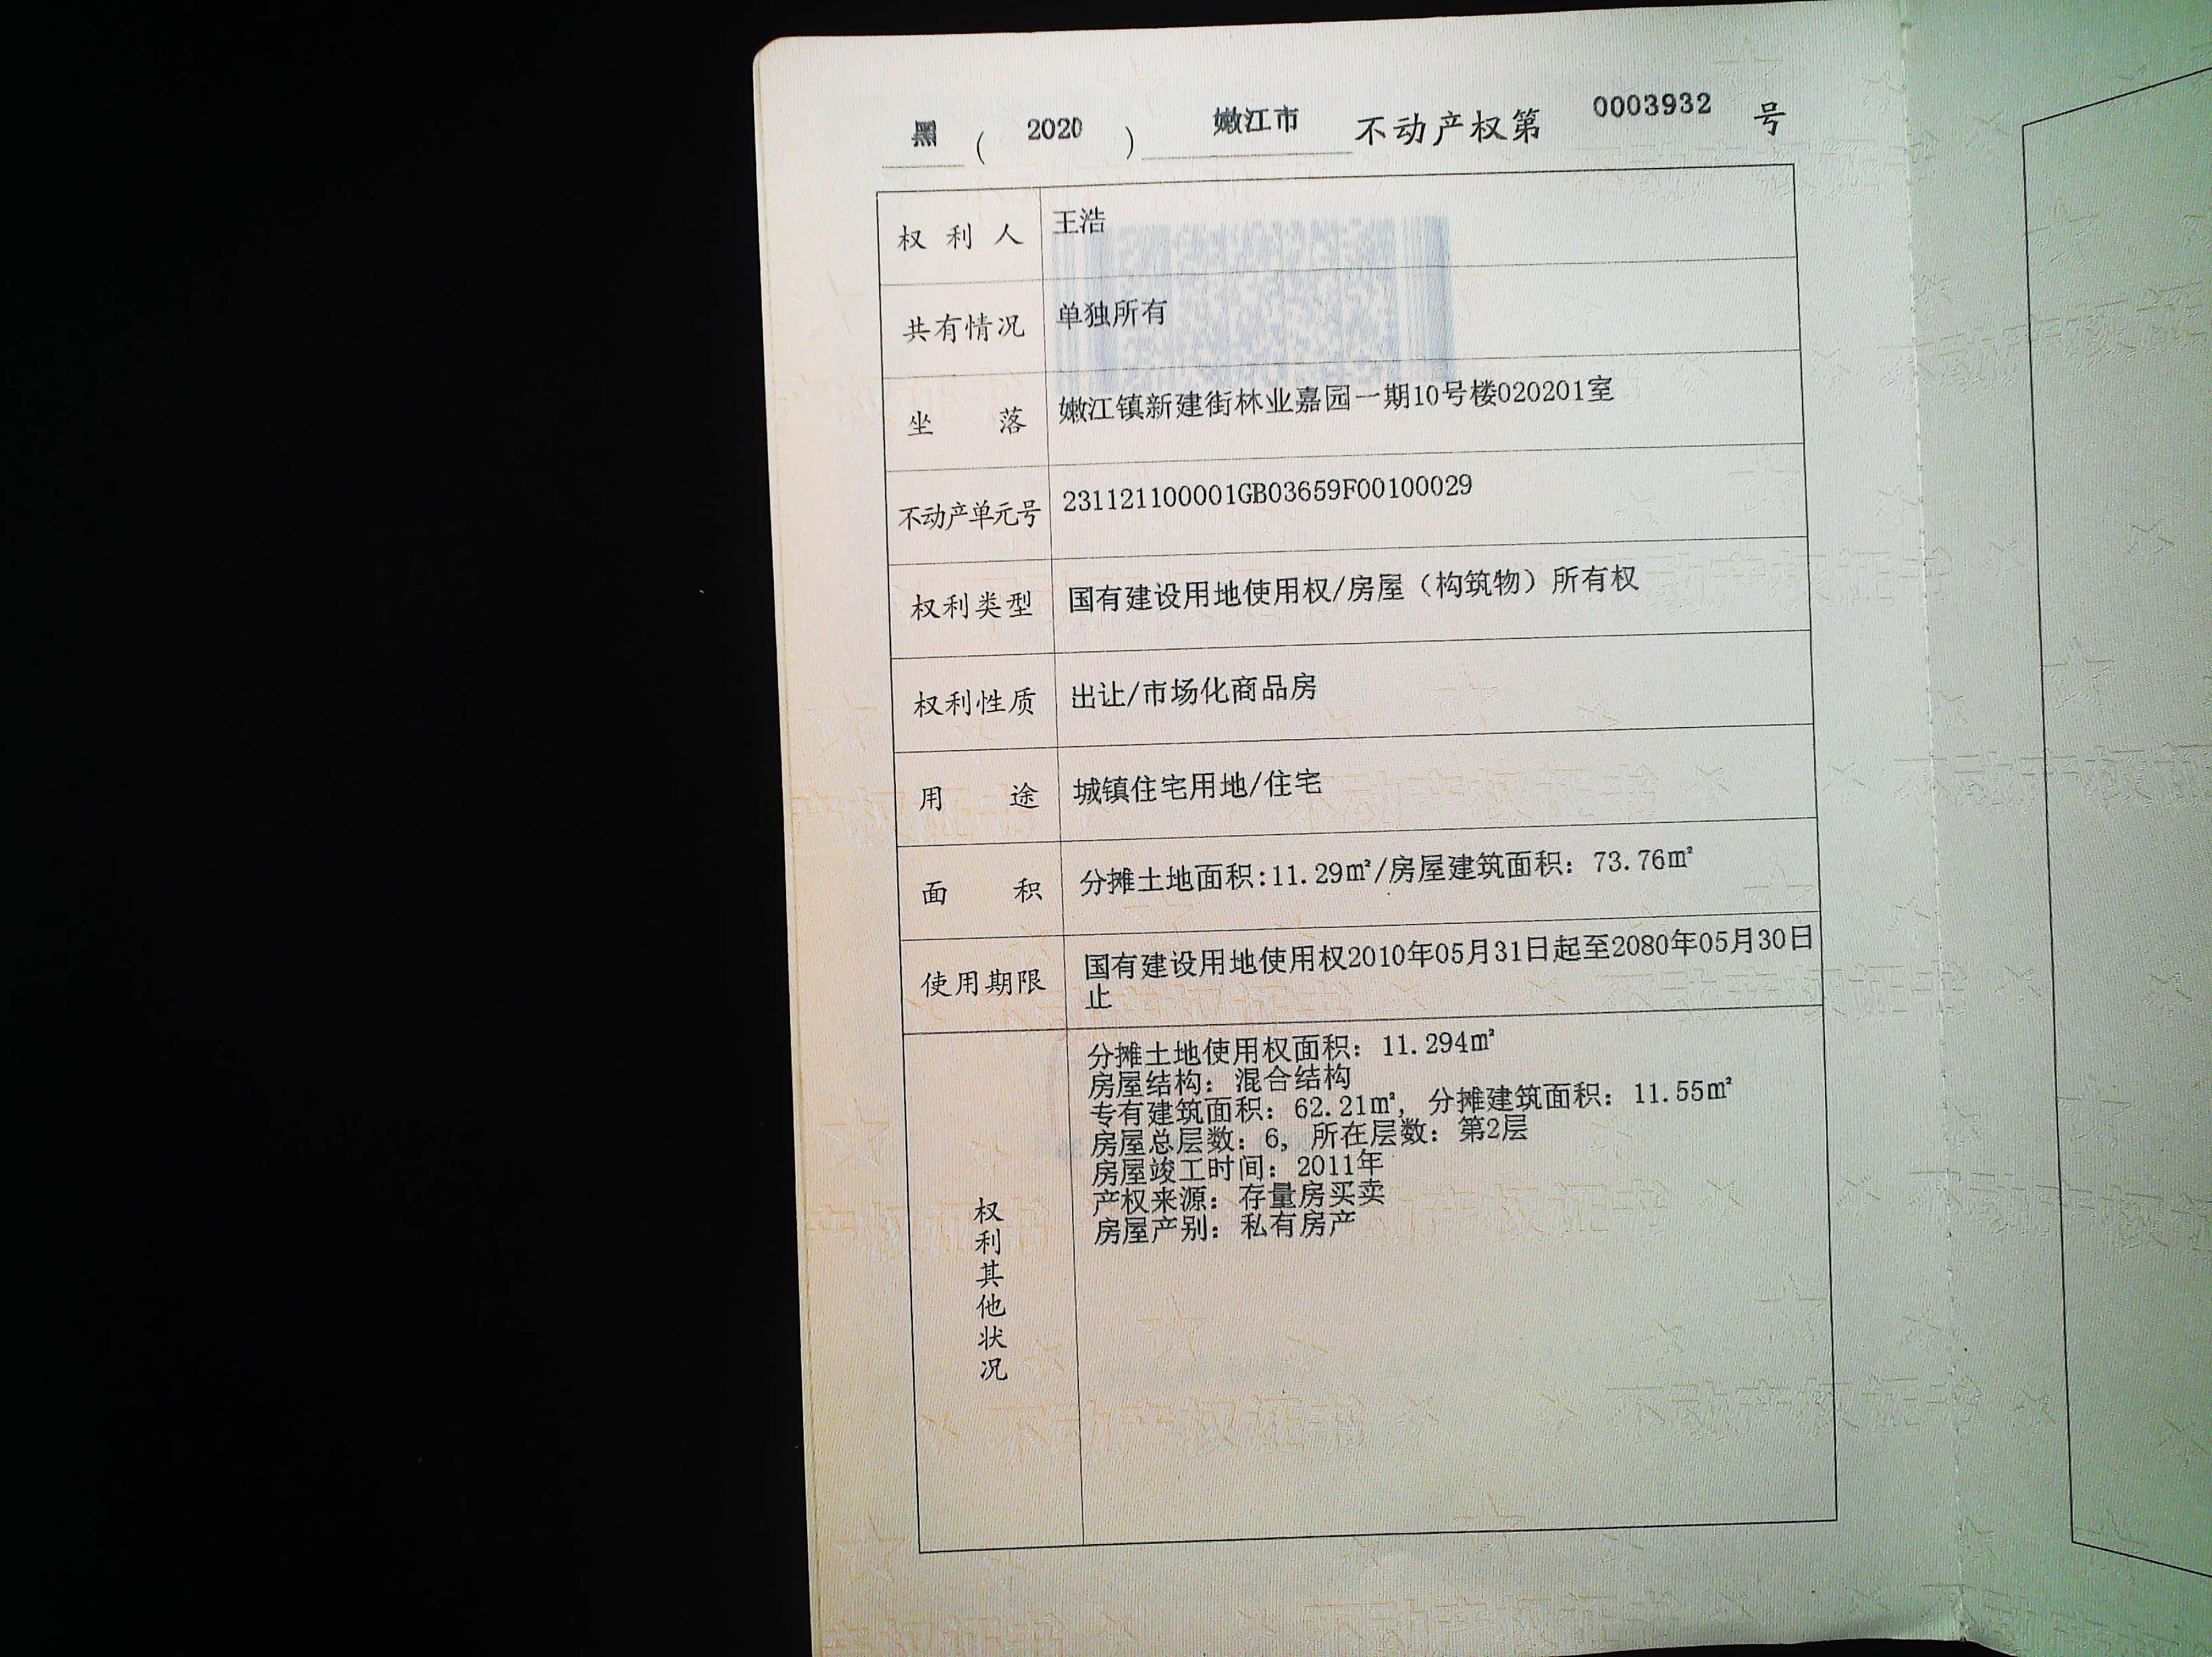 黑 ( 2020 ) 嫩江市 不动产权第 0003932 号
权利人 王浩
共有情况 单独所有
坐落 嫩江镇新建街林业嘉园一期10号楼020201室
不动产单元号 231121100001GB03659F00100029
权利类型 国有建设用地使用权/房屋（构筑物）所有权
权利性质 出让/市场化商品房
用途 城镇住宅用地/住宅
面积 分摊土地面积:11.29㎡/房屋建筑面积：73.76㎡
使用期限 国有建设用地使用权2010年05月31日起至2080年05月30日
止
权利其他状况
分摊土地使用权面积：11.294㎡
房屋结构：混合结构
专有建筑面积：62.21㎡，分摊建筑面积：11.55㎡
房屋总层数：6，所在层数：第2层
房屋竣工时间：2011年
产权来源：存量房买卖
房屋产别：私有房产